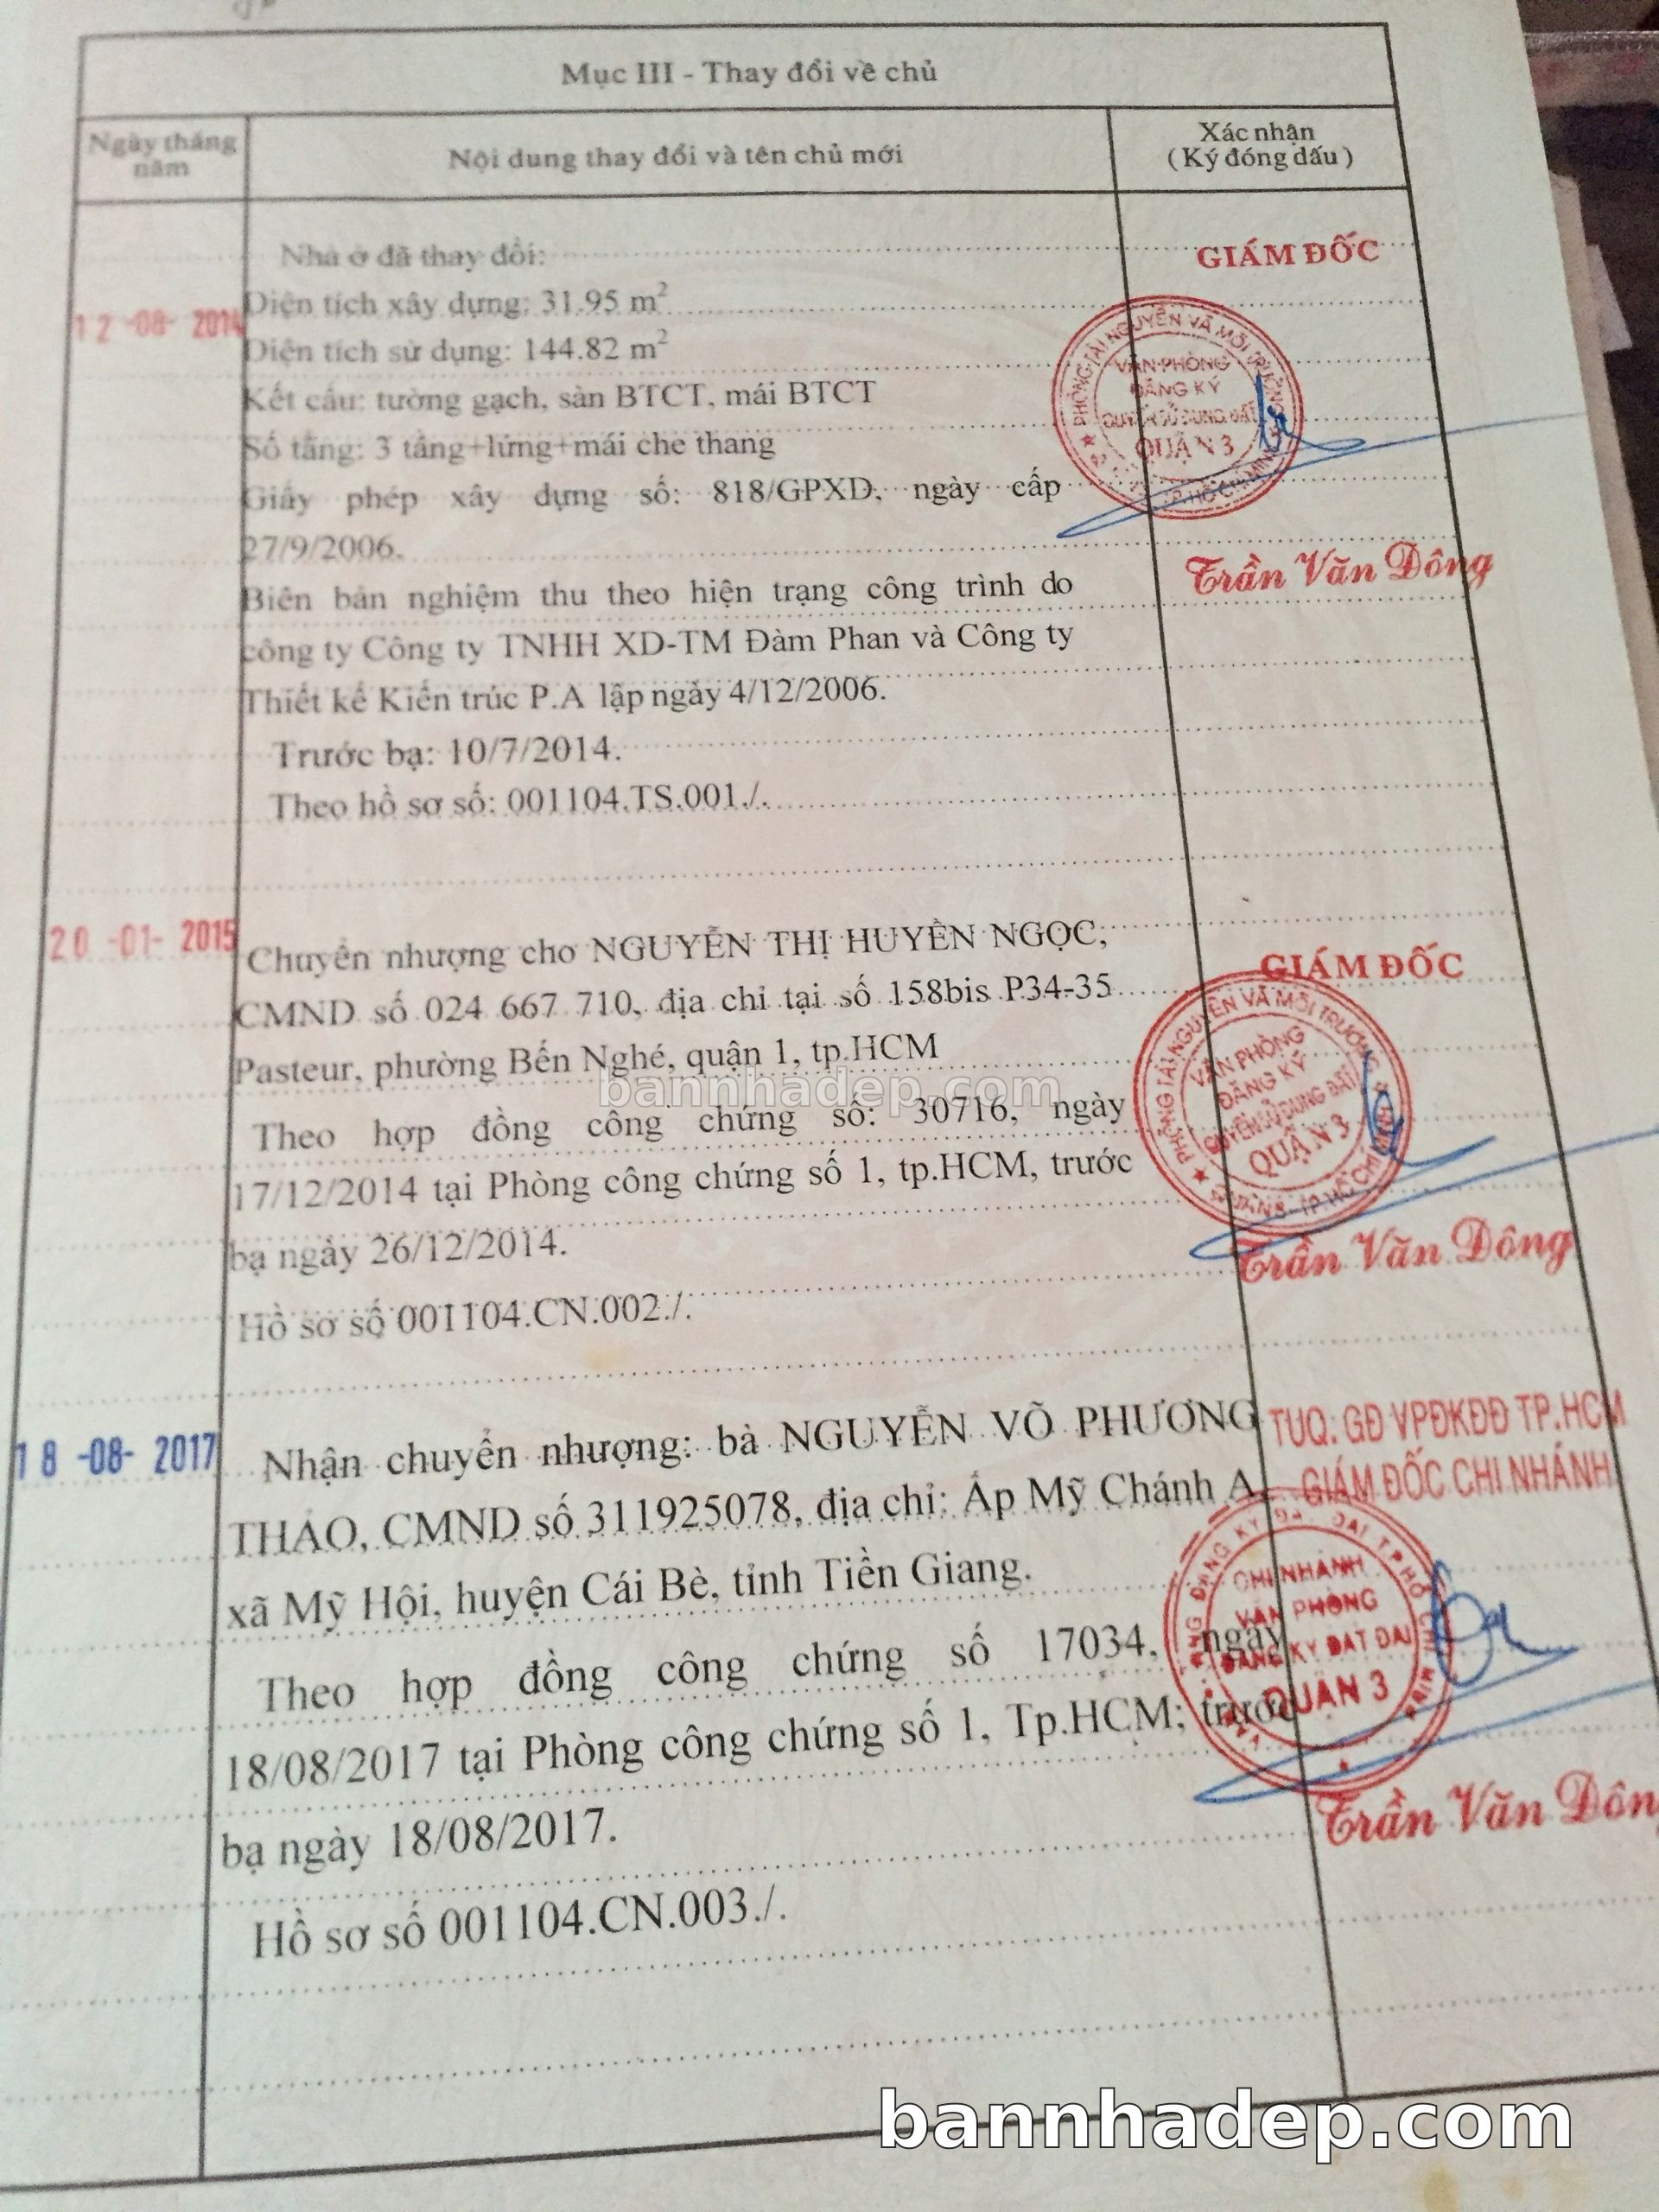 Mục III - Thay đổi về chủ
Ngày tháng năm
Nội dung thay đổi và tên chủ mới
Xác nhận
( Ký đóng dấu )
12 -08- 2014
Nhà ở đã thay đổi:
Diện tích xây dựng: 31.95 m²
Diện tích sử dụng: 144.82 m²
Kết cấu: tường gạch, sàn BTCT, mái BTCT
Số tầng: 3 tầng+lửng+mái che thang
Giấy phép xây dựng số: 818/GPXD, ngày cấp
27/9/2006.
Biên bản nghiệm thu theo hiện trạng công trình do
công ty Công ty TNHH XD-TM Đàm Phan và Công ty
Thiết kế Kiến trúc P.A lập ngày 4/12/2006.
Trước bạ: 10/7/2014.
Theo hồ sơ số: 001104.TS.001./.
GIÁM ĐỐC
PHÒNG TÀI NGUYÊN VÀ MÔI TRƯỜNG
VĂN PHÒNG
ĐĂNG KÝ
QUYỀN SỬ DỤNG ĐẤT
QUẬN 3
TP. HỒ CHÍ MINH
Trần Văn Dông
20 -01- 2015
Chuyển nhượng cho NGUYỄN THỊ HUYỀN NGỌC,
CMND số 024 667 710, địa chỉ tại số 158bis P34-35
Pasteur, phường Bến Nghé, quận 1, tp.HCM
bannhadep.com
Theo hợp đồng công chứng số: 30716, ngày
17/12/2014 tại Phòng công chứng số 1, tp.HCM, trước
bạ ngày 26/12/2014.
Hồ sơ số 001104.CN.002./.
GIÁM ĐỐC
PHÒNG TÀI NGUYÊN VÀ MÔI TRƯỜNG
VĂN PHÒNG
ĐĂNG KÝ
QUYỀN SỬ DỤNG ĐẤT
QUẬN 3
QUẬN 3 - TP. HỒ CHÍ MINH
Trần Văn Dông
18 -08- 2017
Nhận chuyển nhượng: bà NGUYỄN VÕ PHƯƠNG
THẢO, CMND số 311925078, địa chỉ: Ấp Mỹ Chánh A,
xã Mỹ Hội, huyện Cái Bè, tỉnh Tiền Giang.
Theo hợp đồng công chứng số 17034, ngày
18/08/2017 tại Phòng công chứng số 1, Tp.HCM; trước
bạ ngày 18/08/2017.
Hồ sơ số 001104.CN.003./.
TUQ. GĐ VPĐKĐĐ TP.HCM
GIÁM ĐỐC CHI NHÁNH
ĐĂNG KÝ ĐẤT ĐAI TP HỒ CHÍ MINH
CHI NHÁNH
VĂN PHÒNG
ĐĂNG KÝ ĐẤT ĐAI
QUẬN 3
Trần Văn Dông
bannhadep.com